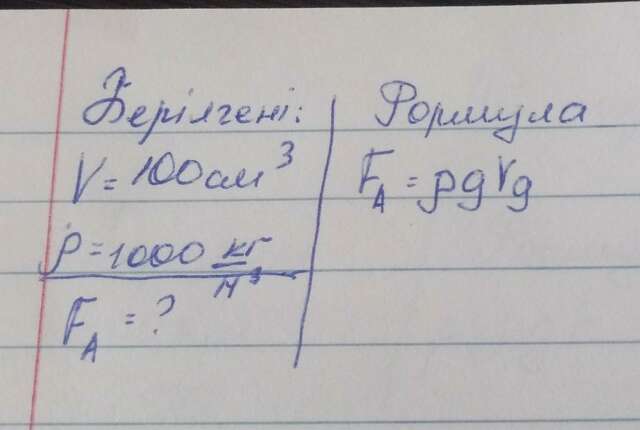 Берілгені:
V = 100 см³
ρ = 1000 кг/м³
F_A = ?
Формула
F_A = ρgVg